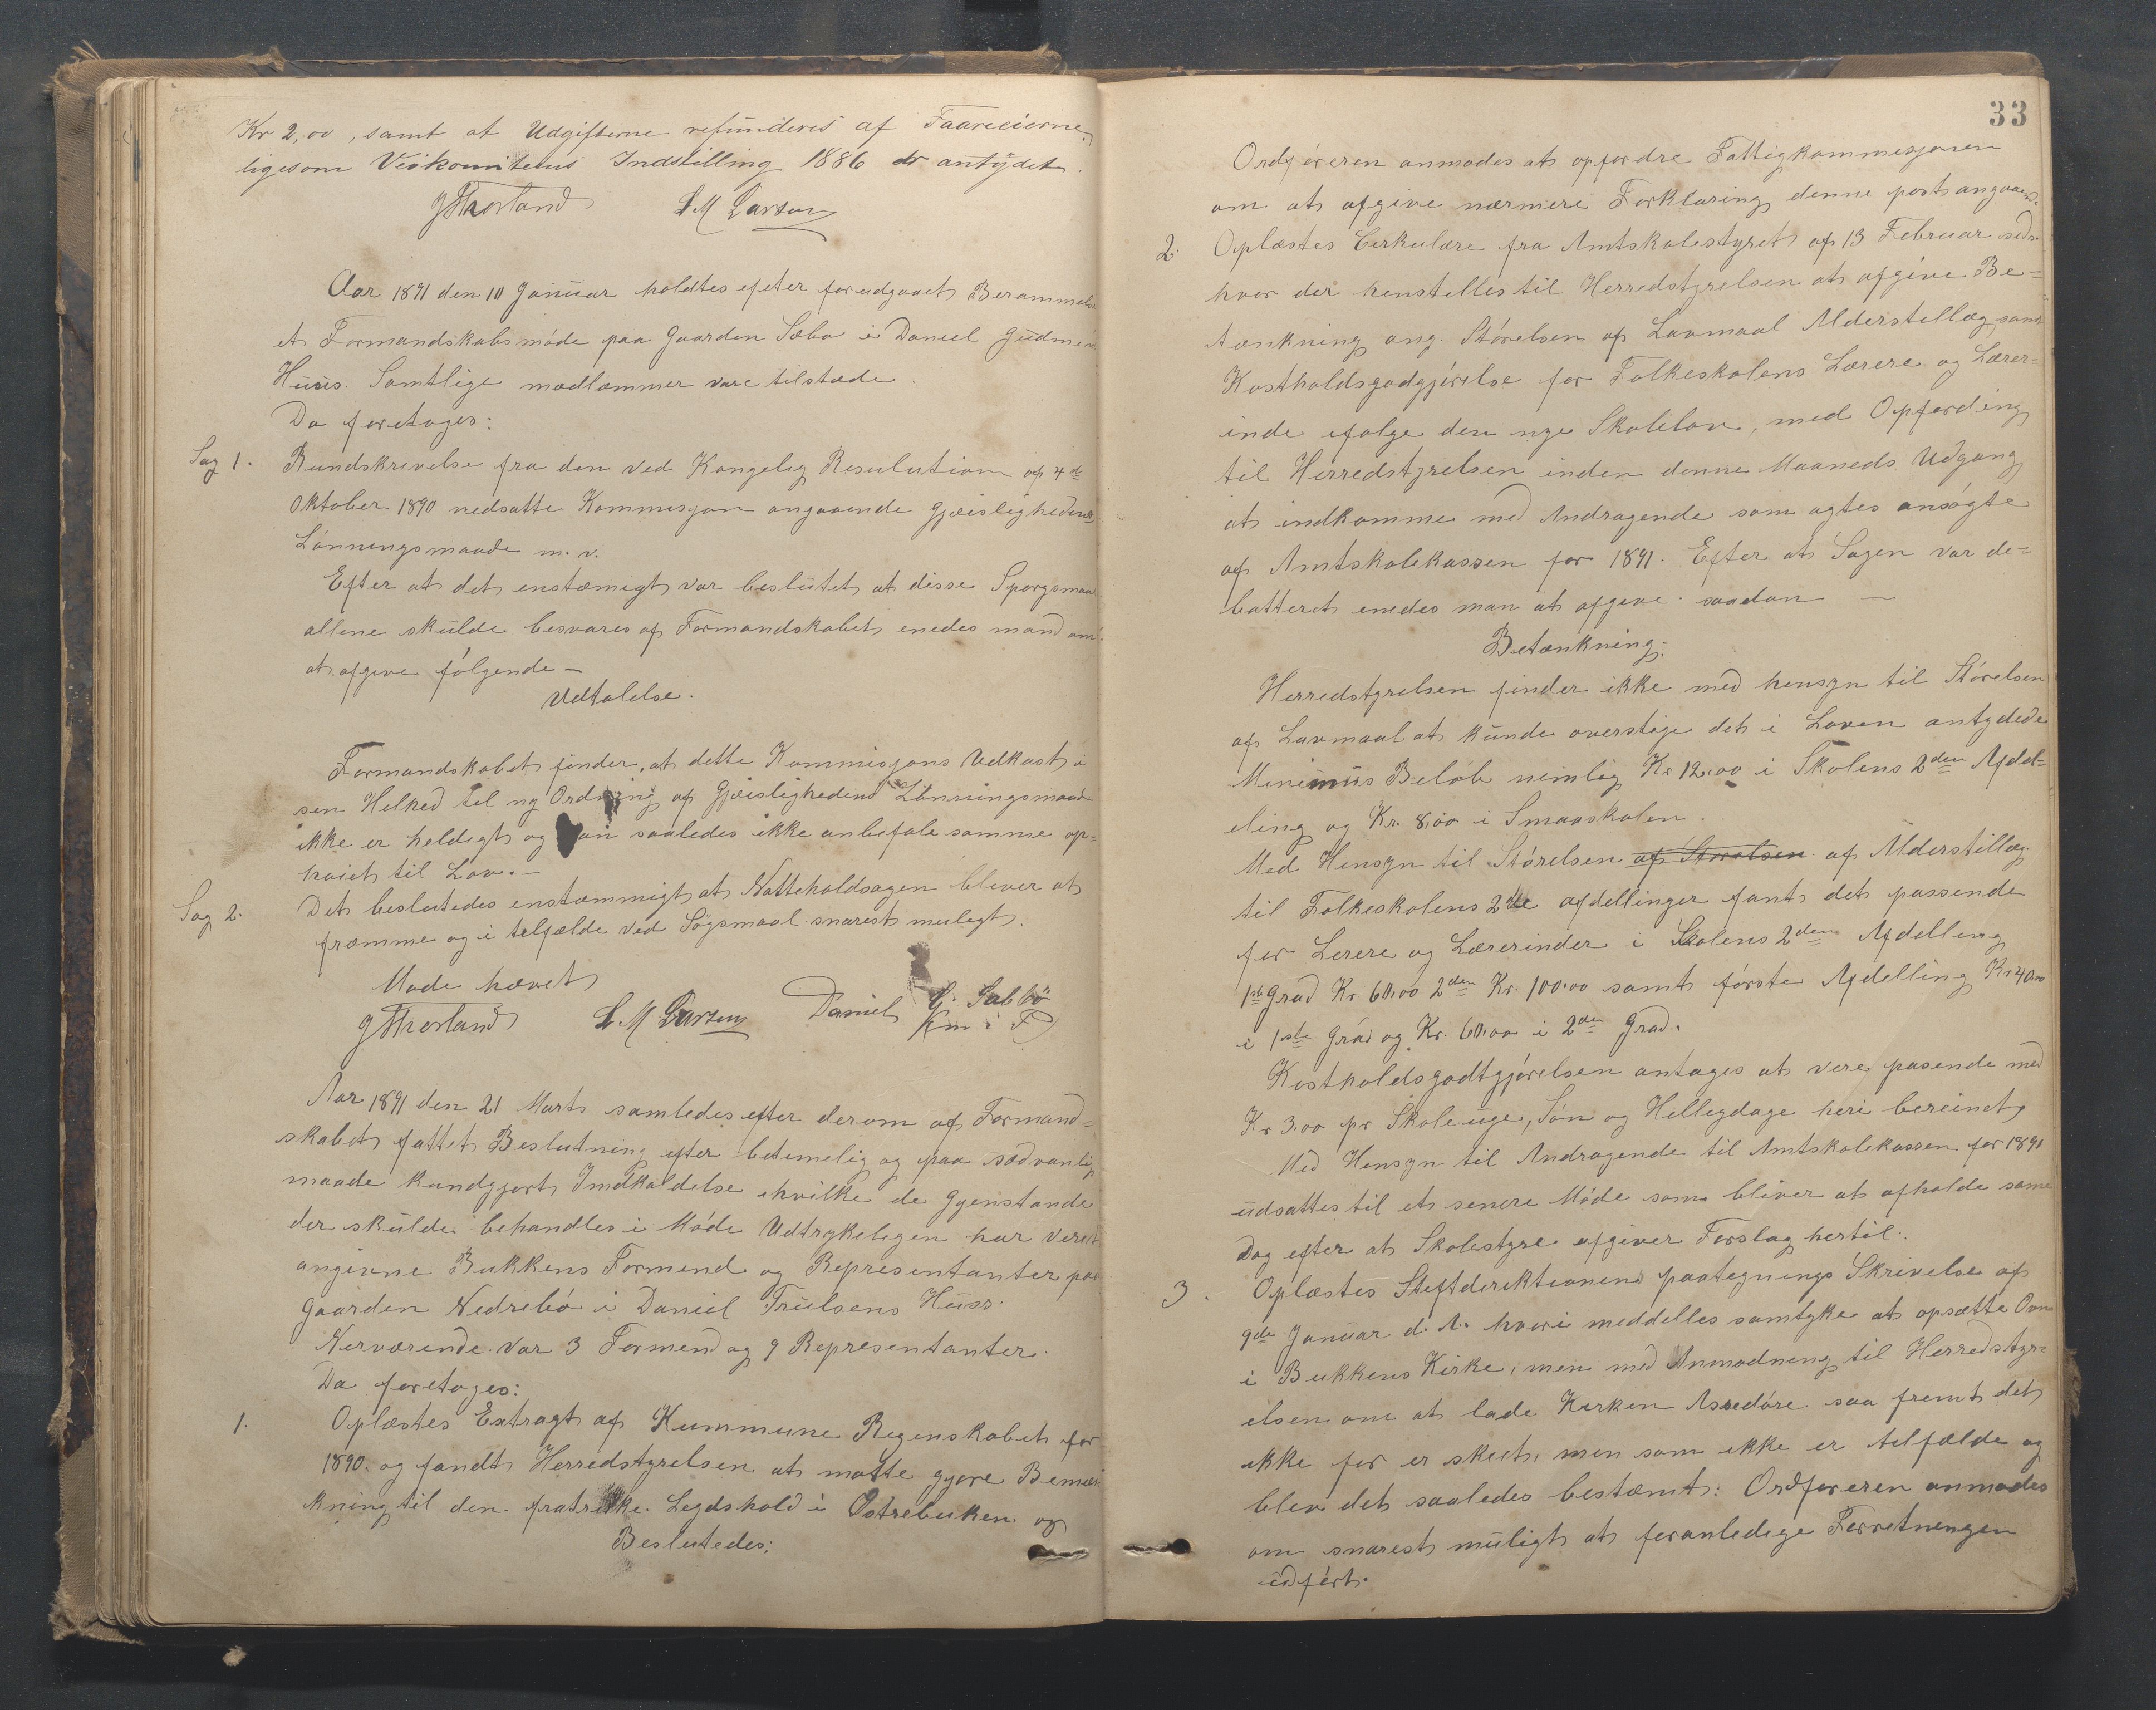 Kr 2,00, samt at Udgifterne refunderes af Faareeierne,
ligesom Veikomiteens Indstilling 1886 er antydet.
L M Larsen
Aar 1891 den 10 Januar holdtes efter forudgaaet Berammelse
et Formandskabsmøde paa Gaarden Sæbø i Daniel Gudmen
Huus. Samtlige medlemmer vare tilstæde.
Da foretoges:
Sag 1. Rundskrivelse fra den ved Kongelig Resulution af 4de
Oktober 1890 nedsatte Kommisjon angaaende Gjeislighedens
Lønningsmaade m.v.
Efter at det enstæmigt var beslutet at disse Sporgsmaa
allene skulde besvares af Formandskabet enedes mand om
at afgive følgende –
Udtalelse.
Formandskabet finder, at dette Kommisjons Udkast i
sen Helhed til ny Ordning af Gjeislighedens Lønningsmaade
ikke er heldigt og kan saaledes ikke anbefale samme op=
høiet til Lov. –
Sag 2. Det beslutedes enstæmmigt at Natteholdsagen bliver at
fræmme og i telfælde ved Søgsmaal snarest mulegt.
Møde hævet
L M Larsen Daniel G. Sæbbø
Aar 1891 den 21 Marts samledes efter derom af Formand=
skabet fattet Beslutning efter betimelig og paa sædvanlig
maade kundgjort Indkaldelse i hvilke de Gjenstande
der skulde behandles i Møde Udtrykelegen har veret
angivne Bukkens Formend og Representanter paa
Gaarden Nedrebø i Daniel Trulsens Huus.
Nerværende var 3 Formend og 9 Representanter.
Da foretoges:
1. Oplæstes Extragt af Kummune Regenskabet for
1890. og fandt Herredstyrelsen at matte gjøre Bemær
kning til den fratrukke Legdshold i Østrebuken og
Beslutedes:
33
Ordføreren anmodes at opfordre Fattigkommisjonen
om at afgive nærmere Forklaring denne post angaaend.
2. Oplæstes Cirkulære fra Amtskolestyret af 13 Februar sids.
hvor der henstilles til Herredstyrelsen at afgive Be=
tænkning ang. Størelsen af Lavmaal Alderstillæg samt
Kostholdsgodgjørelse for Folkeskolens Lærere og Lærer=
inde efølge den nye Skolelov, med Opfording
til Herredstyrelsen inden denne Maaneds Udgang
at indkomme med Andragende som agtes ansøgte
af Amtskolekassen for 1891. Efter at Sagen var de=
batteret enedes man at afgeve saadan –
Betænkning:
Herredstyrelsen finder ikke med hensyn til Størelsen
af Lavmaal at kunde overstige det i Loven antydede
Minimus Beløb nemlig Kr 12.00 i Skolens 2den Afdel=
eling og Kr. 8,00 i Smaaskolen.
Med Hensyn til Størelsen af Størelsen af Alderstillæg
til Folkeskolens 2de afdellinger fant det passende
for Lerere og Lærerinder i Skolens 2den Afdelling
1st Grad Kr. 60.00 2den Kr. 100.00 samt første Afdelling Kr 40.00
i 1ste Grad og Kr. 60.00 i 2den Grad.
Kostholdsgodtgjørelsen antages at vere pasende med
Kr 3.00 pr Skoleuge, Søn og Hellegdage heri bereinet
Med Hensyn til Andragende til Amtskolekassen for 1891
udsattes til et senere Møde som bliver at afholde same
Dag efter at Skolestyre afgiver Forslag hertil.
3. Oplæstes Steftderiktionens paategnings Skrivelse af
9de Januar d. A. hvori meddelles samtyke at opsætte Ovn
i Bukkens Kirke, men med Anmodning til Herredstyr=
elsen om at lade Kirken Assedøre saa fremt det
ikke før er skeet, men som ikke er telfælde og
blev det saaledes bestæmt: Ordføreren anmodes
om snarest muligt at foranledige Forretningen
udført.